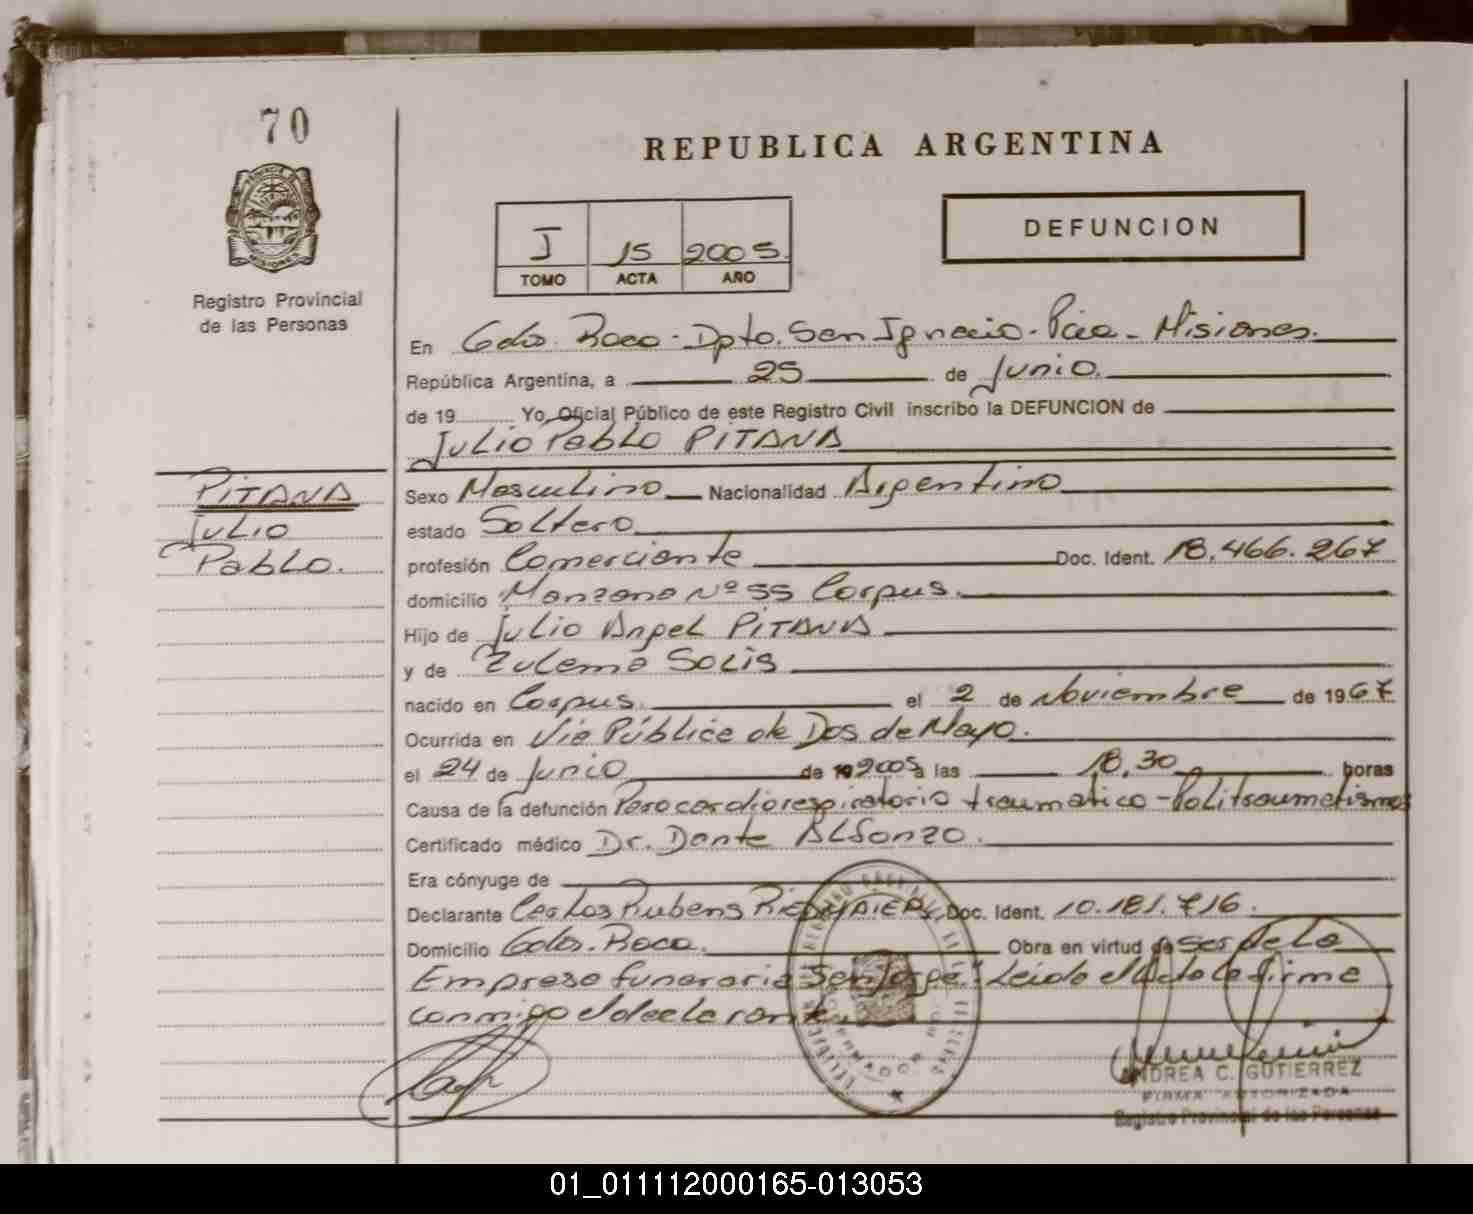 70
REPUBLICA ARGENTINA
DEFUNCION
I 15 2005.
TOMO ACTA AÑO
MISIONES
Registro Provincial
de las Personas
En Gdor. Roca - Dpto. San Ignacio - Pcia - Misiones.
República Argentina, a 25 de Junio.
de 19 Yo, Oficial Público de este Registro Civil inscribo la DEFUNCION de
Julio Pablo PITANA
PITANA
Julio
Pablo.
Sexo Masculino Nacionalidad Argentino
estado Soltero
profesión Comerciante Doc. Ident. 18.466.267
domicilio Manzana Nº 55 Corpus.
Hijo de Julio Angel PITANA
y de Zulema Solis
nacido en Corpus. el 2 de Noviembre de 1967
Ocurrida en Via Pública de Dos de Mayo.
el 24 de Junio de 192005 a las 18,30 horas
Causa de la defunción Parocardiorespiratorio traumatico - Politraumatismos
Certificado médico Dr. Dante Alfonzo.
Era cónyuge de
Declarante Carlos Rubens RIEDMAIER, Doc. Ident. 10.181.716.
Domicilio Gdor. Roca. Obra en virtud de ser de la
Empresa funeraria "San Jorge" Leida el Acta la firma
conmigo el declarante.
ANDREA C. GUTIERREZ
FIRMA AUTORIZADA
Registro Provincial de las Personas
01_011112000165-013053